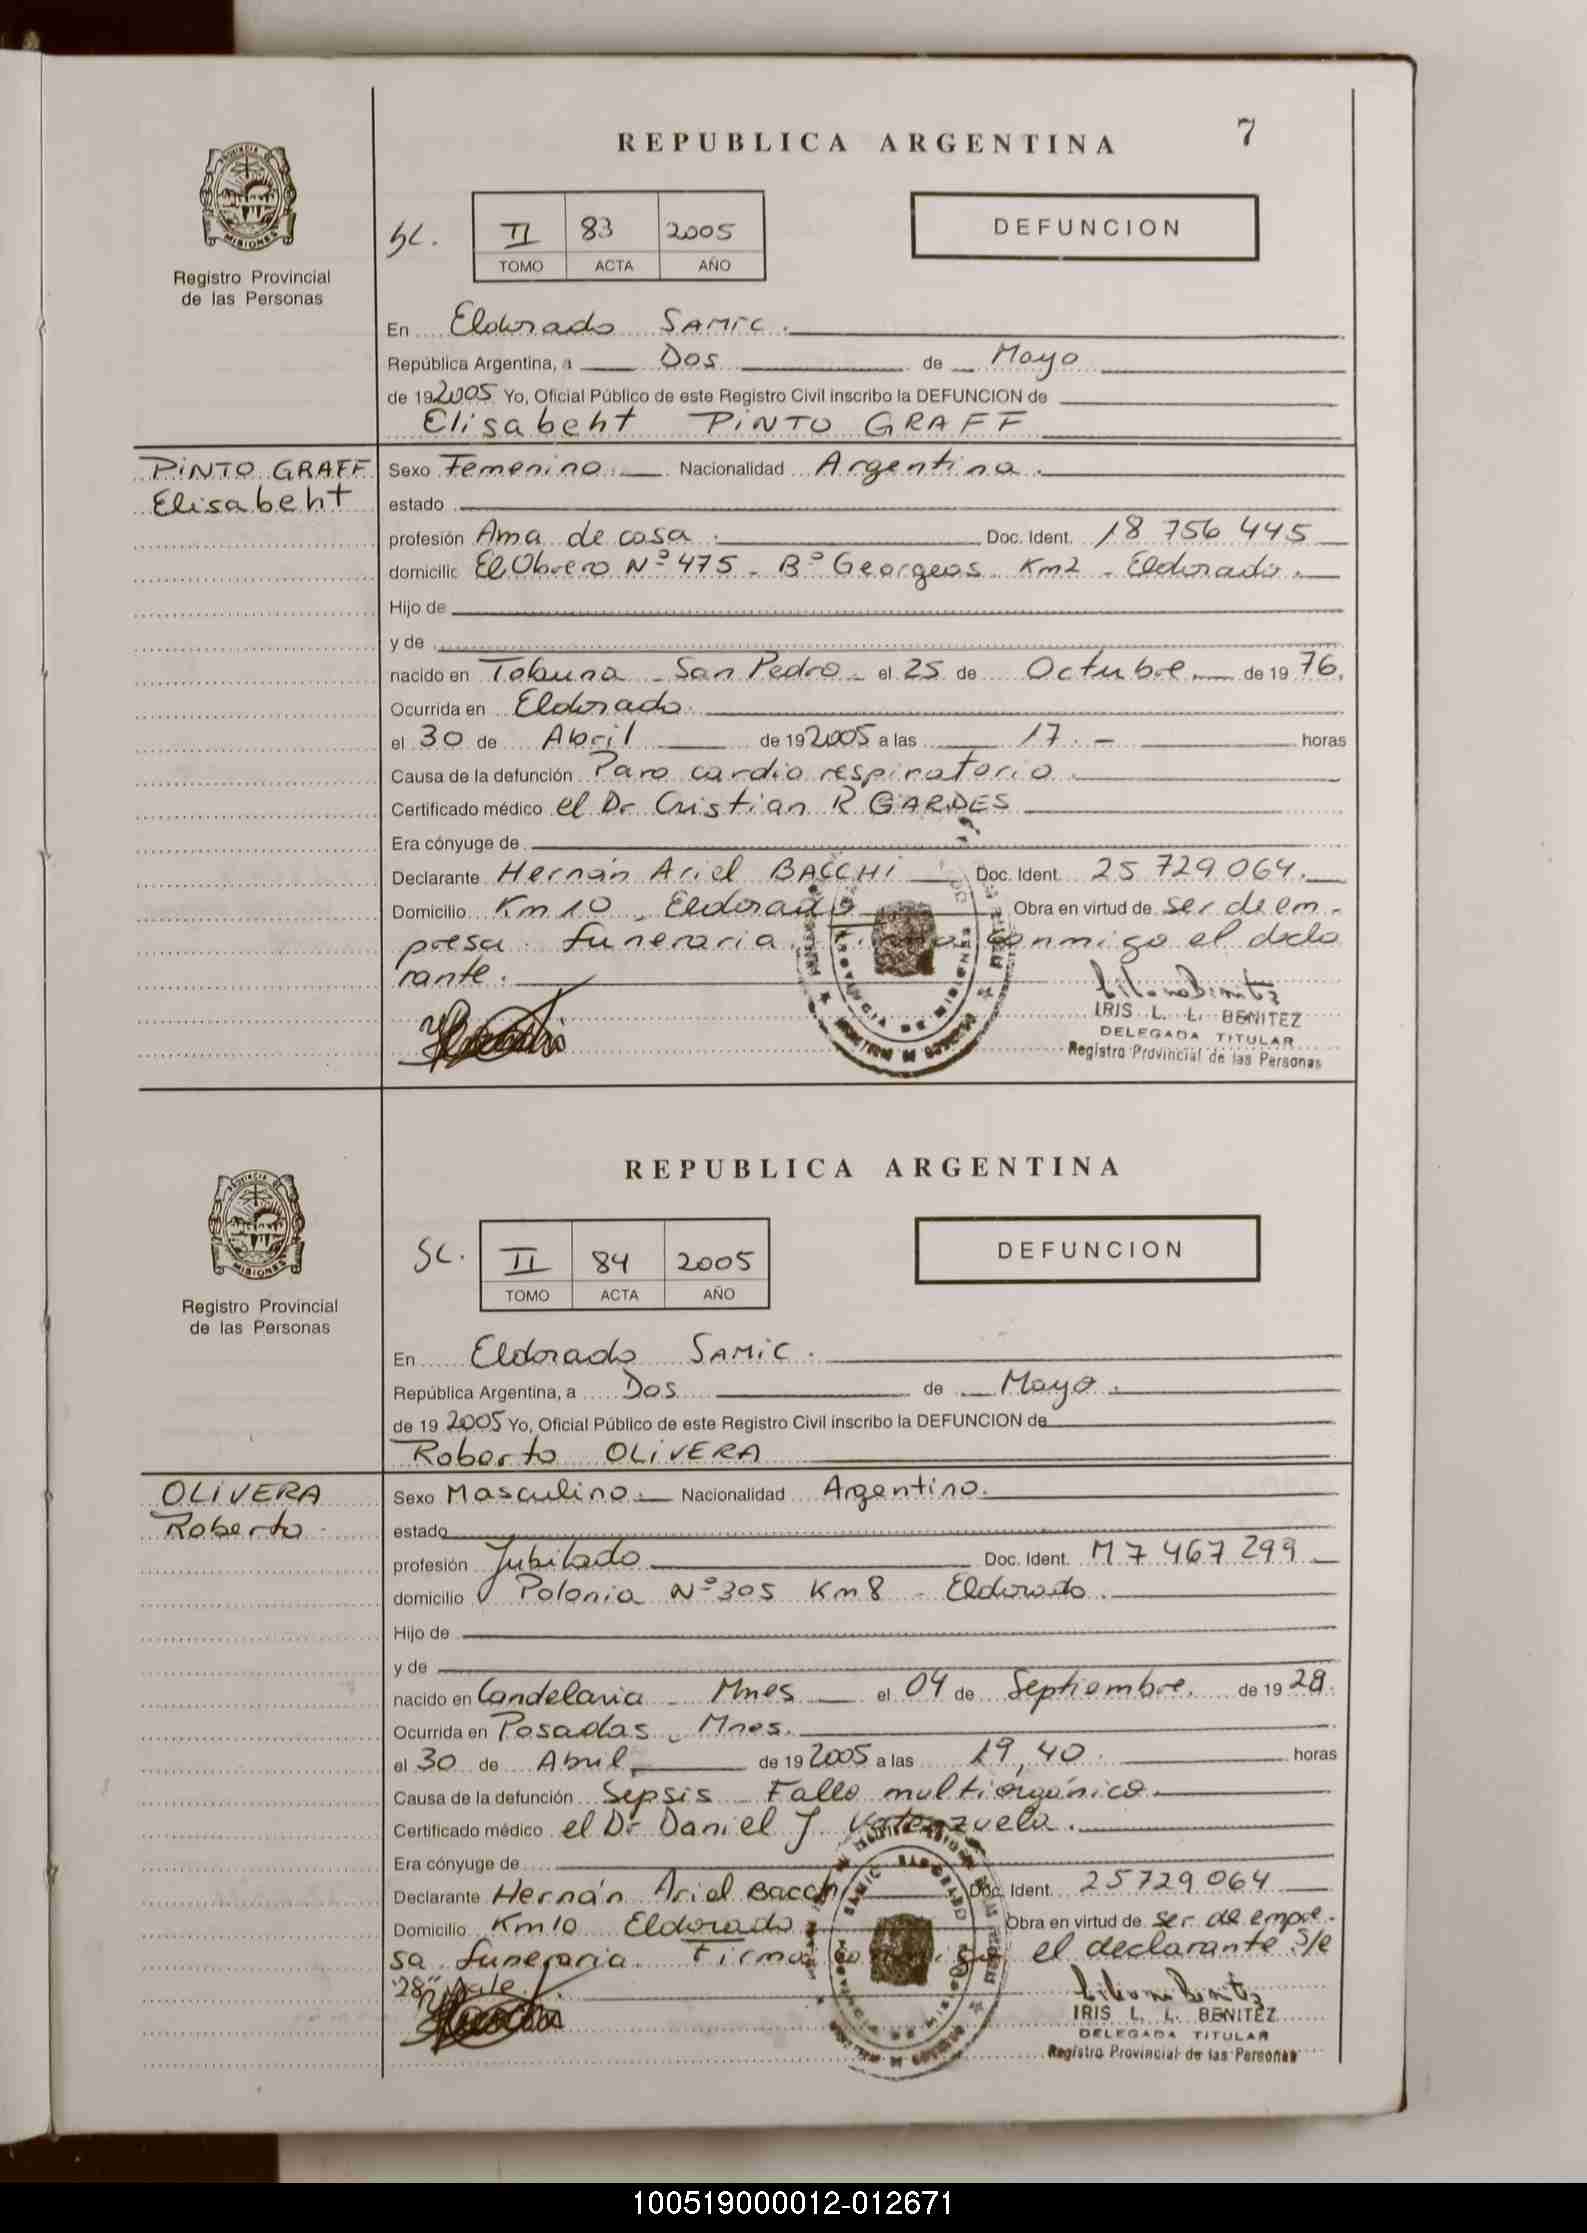 REPUBLICA ARGENTINA
7
PROVINCIA DE
MISIONES
Registro Provincial
de las Personas
SC.
II 83 2005
TOMO ACTA AÑO
DEFUNCION
En Eldorado SAMIC.
República Argentina, a Dos de Mayo
de 192005 Yo, Oficial Público de este Registro Civil inscribo la DEFUNCION de
Elisabeht PINTO GRAFF
PINTO GRAFF
Elisabeht
Sexo Femenino. Nacionalidad Argentina.
estado
profesión Ama de casa. Doc. Ident. 18 756 445
domicilio El Obrero Nº 475 - Bº Georgeos Km2 - Eldorado.
Hijo de
y de
nacido en Tobuna - San Pedro - el 25 de Octubre. de 19 76.
Ocurrida en Eldorado.
el 30 de Abril de 192005 a las 17.- horas
Causa de la defunción Paro cardio respiratorio.
Certificado médico el Dr Cristian R GARDES
Era cónyuge de
Declarante Hernán Ariel BACCHI Doc. Ident. 25 729 064.
Domicilio Km 10 - Eldorado Obra en virtud de ser de em-
presa funeraria. conmigo el decla
rante.
IRIS L. L. BENITEZ
DELEGADA TITULAR
Registro Provincial de las Personas
REPUBLICA ARGENTINA
PROVINCIA DE
MISIONES
Registro Provincial
de las Personas
SC.
II 84 2005
TOMO ACTA AÑO
DEFUNCION
En Eldorado SAMIC.
República Argentina, a Dos de Mayo.
de 19 2005 Yo, Oficial Público de este Registro Civil inscribo la DEFUNCION de
Roberto OLIVERA
OLIVERA
Roberto
Sexo Masculino. Nacionalidad Argentino.
estado
profesión Jubilado Doc. Ident. M 7 467 299
domicilio Polonia Nº 305 Km 8 - Eldorado.
Hijo de
y de
nacido en Candelaria - Mnes el 04 de Septiembre. de 19 28.
Ocurrida en Posadas - Mnes.
el 30 de Abril de 19 2005 a las 19,40. horas
Causa de la defunción Sepsis - Fallo multiorgánico.
Certificado médico el Dr Daniel J Valenzuela.
Era cónyuge de
Declarante Hernán Ariel BACCHI Doc. Ident. 25729064
Domicilio Km 10 Eldorado Obra en virtud de ser de empre-
sa funeraria. Firma conmigo el declarante S/e
"28" Vale.
IRIS L. L. BENITEZ
DELEGADA TITULAR
Registro Provincial de las Personas
100519000012-012671